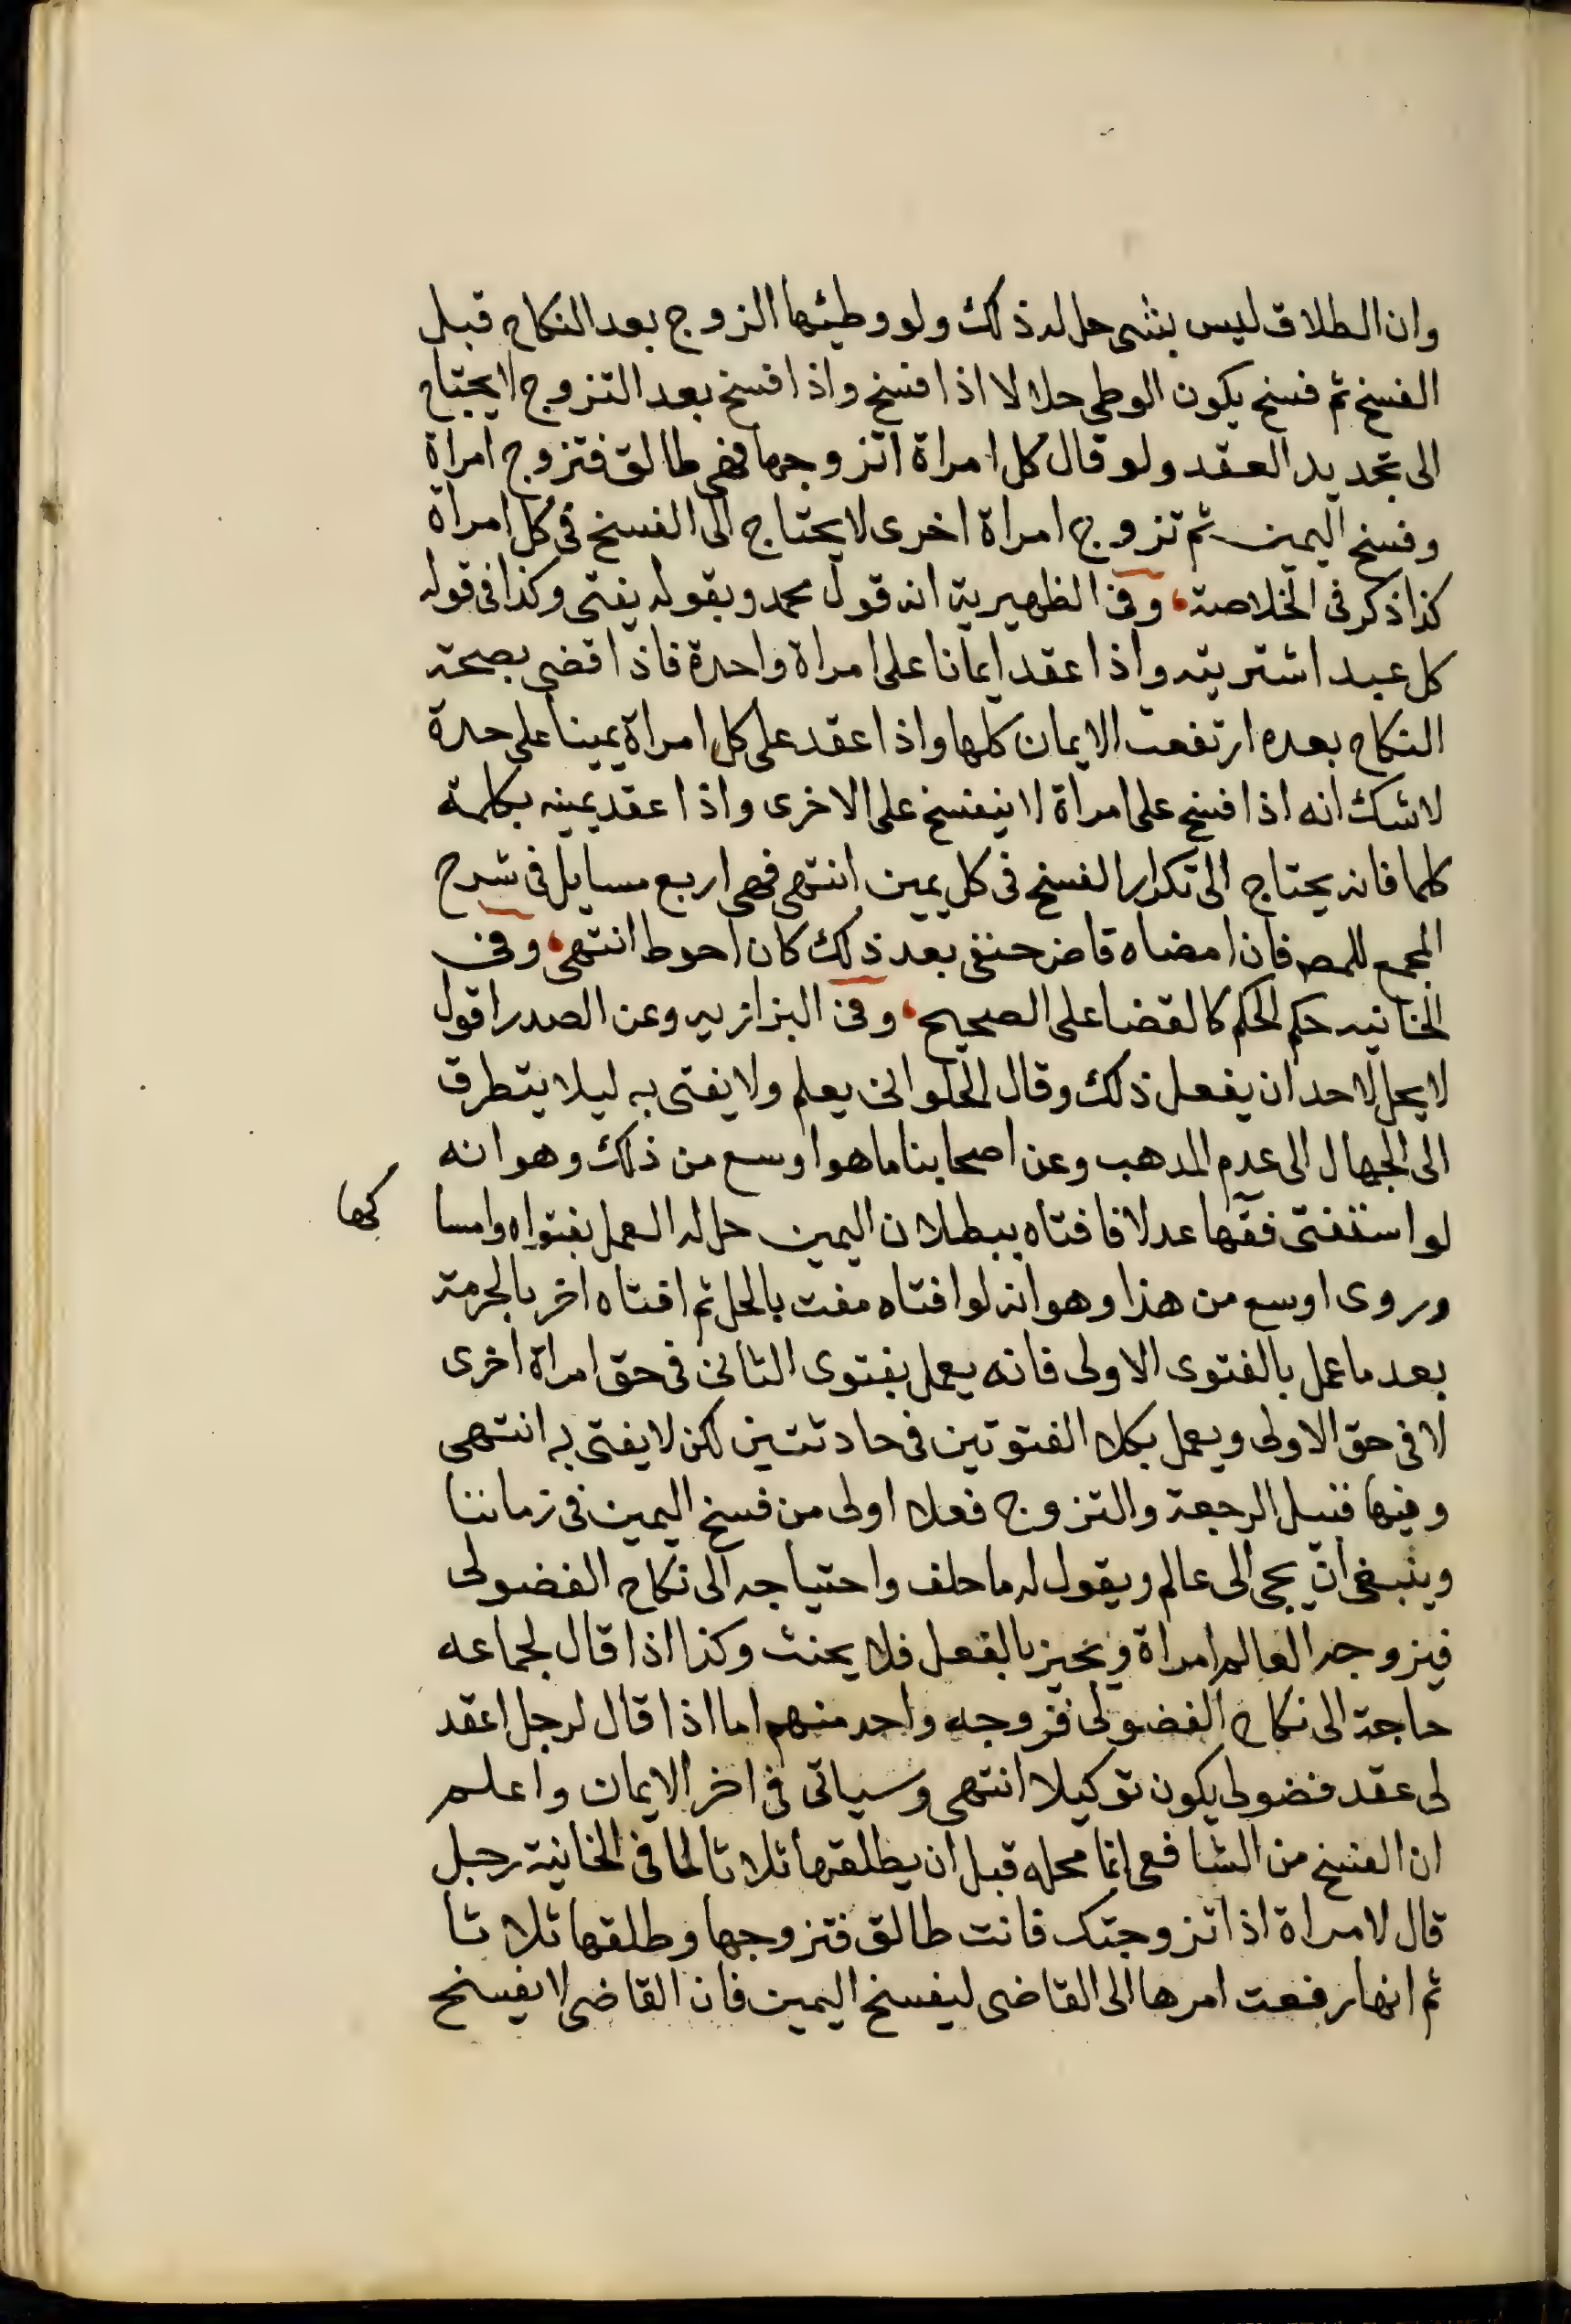 وان الطلاق ليس بشى حل له ذلك ولو وطيئها الزوج بعد النكاح قبل
الفسخ ثم فسخ يكون الوطى حلالا اذا فسخ واذا فسخ بعد التزوج لا يحتاج
الى تجديد العقد ولو قال كل امراة اتزوجها فهى طالق فتزوج امراة
وفسخ اليمين ثم تزوج امراة اخرى لا يحتاج الى الفسخ فى كل امراة
كذا ذكر فى الخلاصة، وفى الظهيرية انه قول محمد وبقوله يفتى وكذا فى قوله
كل عبد اشتريته واذا عقد ايمانا على امراة واحدة فاذا قضى بصحة
النكاح بعده ارتفعت الايمان كلها واذا عقد على كل امراة يمينا على حدة
لا شك انه اذا فسخ على امراة لا ينفسخ على الاخرى واذا عقد يمينه بكلمة
كلما فانه يحتاج الى تكرار الفسخ فى كل يمين انتهى فهى اربع مسايل فى شرح
المجمع للمصه فان امضاه قاض حنفى بعد ذلك كان احوط انتهى، وفى
الخانيه حكم الحكم كالقضا على الصحيح، وفى البزازيه وعن الصدر اقول
لا يحل لاحد ان يفعل ذلك وقال الحلوانى يعلم ولا يفتى به ليلا يتطرق
الى الجهال الى عدم المدهب وعن اصحابنا ما هو اوسع من ذلك وهو انه
لو استفتى فقها عدلا فافتاه ببطلان اليمين حل له العمل بفتواه وامسا كها
وروى اوسع من هذا وهو انه لو افتاه مفت بالحل ثم افتاه اخر بالحرمة
بعد ما عمل بالفتوى الاولى فانه يعمل بفتوى الثانى فى حق امراة اخرى
لا فى حق الاولى ويعمل بكلا الفتوتين فى حادثتين لكن لا يفتى به انتهى
وفيها قبيل الرجعة والتزوج فعلا اولى من فسخ اليمين فى زماننا
وينبغى ان يجى الى عالم ويقول له ما حلف واحتياجه الى نكاح الفضولى
فيزوجه العالم امراة ويجيز بالفعل فلا يحنث وكذا اذا قال لجماعه
حاجة الى نكاح الفضولى فزوجه واحد منهم اما اذا قال لرجل اعقد
لى عقد فضولى يكون توكيلا انتهى وسياتى فى اخر الايمان واعلم
ان الفسخ من الشافعى انما محله قبل ان يطلقها ثلاثا لما فى الخانية رجل
قال لامراة اذا تزوجتك فانت طالق فتزوجها وطلقها ثلاثا
ثم انها رفعت امرها الى القاضى ليفسخ اليمين فان القاضى لا يفسخ